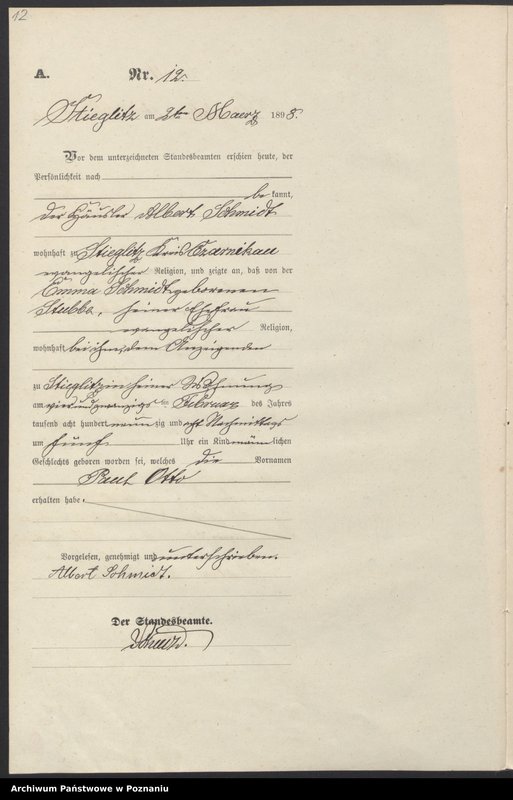 12
A. Nr. 12.
Stieglitz am 2ten Maerz 1898.
Vor dem unterzeichneten Standesbeamten erschien heute, der
Persönlichkeit nach
be kannt,
der Häusler Albert Schmidt
wohnhaft zu Stieglitz Kreis Czarnikau
evangelischer Religion, und zeigte an, daß von der
Emma Schmidt geborenen
Stubbe, seiner Ehefrau
evangelischer Religion,
wohnhaft bei ihm, dem Anzeigenden
zu Stieglitz in seiner Wohnung
am vierundzwanzigsten Februar des Jahres
tausend acht hundert neun zig und acht Nachmittags
um fünf Uhr ein Kind männ lichen
Geschlechts geboren worden sei, welches die Vornamen
Paul Otto
erhalten habe.
Vorgelesen, genehmigt und unterschrieben.
Albert Schmidt.
Der Standesbeamte.
Archiwum Państwowe w Poznaniu